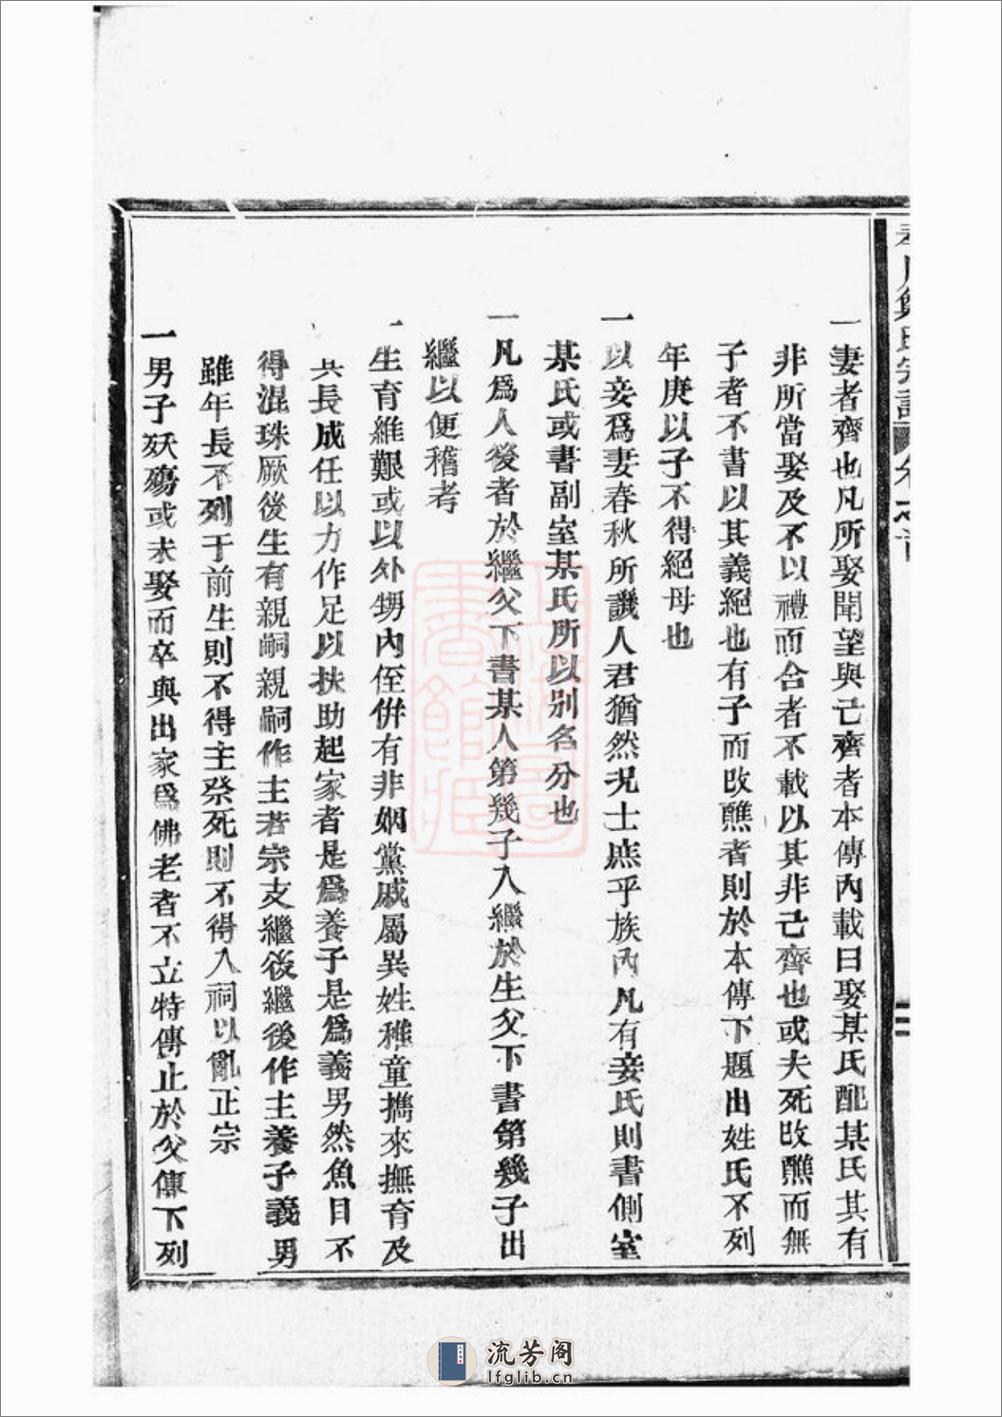 一妻者齊也凡所娶聞望與己齊者本傳內載曰娶某氏配某氏其有
非所當娶及不以禮而合者不載以其非己齊也或夫死改醮而無
子者不書以其義絕也有子而改醮者則於本傳下題出姓氏不列
年庚以子不得絕母也
一以妾爲妻春秋所譏人君猶然況士庶乎族內凡有妾氏則書側室
某氏或書副室某氏所以别名分也
一凡爲人後者於繼父下書某人第幾子入繼於生父下書第幾子出
繼以便稽考
一生育維艱或以外甥內侄倂有非姻黨戚屬異姓稚童擕來撫育及
其長成任以力作足以扶助起家者是爲養子是爲義男然魚目不
得混珠厥後生有親嗣親嗣作主若宗支繼後繼後作主養子義男
雖年長不列于前生則不得主祭死則不得入祠以亂正宗
一男子殀殤或未娶而卒與出家爲佛老者不立特傳止於父傳下列
流芳阁
lfglib.cn